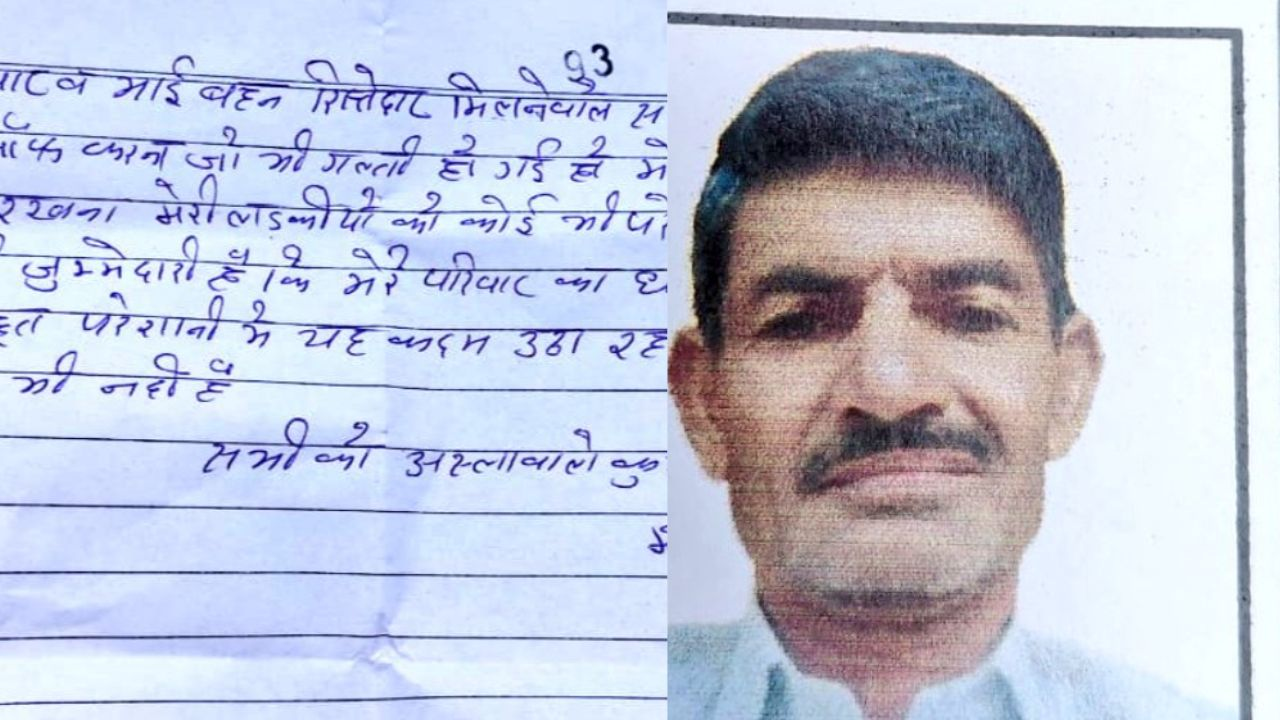 23
व भाई बहन रिश्तेदार मिलनेवाले स
करना जो भी गल्ती हो गई हो मे
रखना मेरी लडकीयो को कोई भी परे
जुम्मेदारी है कि मेरे परिवार का ध
परेशानी मे यह कदम उठा रह
भी नही है
सभी को अस्लावाले कु